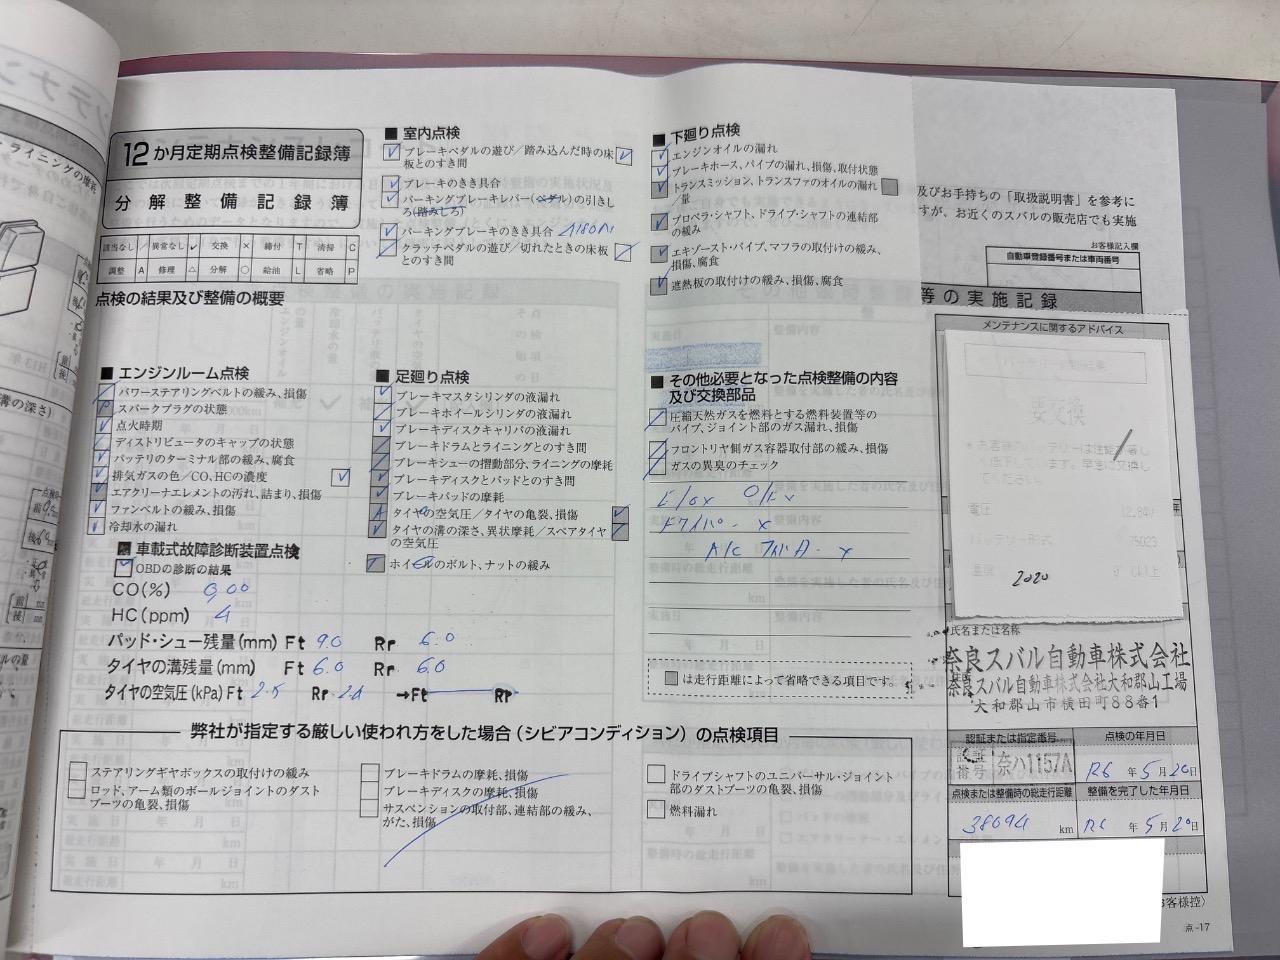 12か月定期点検整備記録簿
分解整備記録簿
該当なし / 異常なし ✓ 交換 × 締付 T 清掃 C
調整 A 修理 △ 分解 ○ 給油 L 省略 P
点検の結果及び整備の概要
■ エンジンルーム点検
パワーステアリングベルトの緩み、損傷
スパークプラグの状態
点火時期
ディストリビュータのキャップの状態
バッテリのターミナル部の緩み、腐食
排気ガスの色/CO、HCの濃度
エアクリーナエレメントの汚れ、詰まり、損傷
ファンベルトの緩み、損傷
冷却水の漏れ
車載式故障診断装置点検
OBDの診断の結果
CO(%) 0.00
HC(ppm) 4
パッド・シュー残量(mm) Ft 9.0 Rr 6.0
タイヤの溝残量(mm) Ft 6.0 Rr 6.0
タイヤの空気圧(kPa) Ft Rr →Ft Rr
■ 室内点検
ブレーキペダルの遊び/踏み込んだ時の床
板とのすき間
ブレーキのきき具合
パーキングブレーキレバー(ペダル)の引きし
ろ(踏みしろ)
パーキングブレーキのきき具合
クラッチペダルの遊び/切れたときの床板
とのすき間
■ 足廻り点検
ブレーキマスタシリンダの液漏れ
ブレーキホイールシリンダの液漏れ
ブレーキディスクキャリパの液漏れ
ブレーキドラムとライニングとのすき間
ブレーキシューの摺動部分、ライニングの摩耗
ブレーキディスクとパッドとのすき間
ブレーキパッドの摩耗
タイヤの空気圧/タイヤの亀裂、損傷
タイヤの溝の深さ、異状摩耗/スペアタイヤ
の空気圧
ホイールのボルト、ナットの緩み
■ 下廻り点検
エンジンオイルの漏れ
ブレーキホース、パイプの漏れ、損傷、取付状態
トランスミッション、トランスファのオイルの漏れ
/量
プロペラ・シャフト、ドライブ・シャフトの連結部
の緩み
エキゾースト・パイプ、マフラの取付けの緩み、
損傷、腐食
遮熱板の取付けの緩み、損傷、腐食
■ その他必要となった点検整備の内容
及び交換部品
圧縮天然ガスを燃料とする燃料装置等の
パイプ、ジョイント部のガス漏れ、損傷
フロントリヤ側ガス容器取付部の緩み、損傷
ガスの異臭のチェック
は走行距離によって省略できる項目です。
弊社が指定する厳しい使われ方をした場合(シビアコンディション)の点検項目
ステアリングギヤボックスの取付けの緩み
ロッド、アーム類のボールジョイントのダスト
ブーツの亀裂、損傷
ブレーキドラムの摩耗、損傷
ブレーキディスクの摩耗、損傷
サスペンションの取付部、連結部の緩み、
がた、損傷
ドライブシャフトのユニバーサル・ジョイント
部のダストブーツの亀裂、損傷
燃料漏れ
及びお手持ちの「取扱説明書」を参考に
すが、お近くのスバルの販売店でも実施
お客様記入欄
自動車登録番号または車両番号
等の実施記録
メンテナンスに関するアドバイス
要交換
2020
氏名または名称
奈良スバル自動車株式会社
奈良スバル自動車株式会社大和郡山工場
大和郡山市横田町88番1
認証または指定番号
認証番号 奈ハ1157A
点検の年月日
R6 年 5 月 20 日
点検または整備時の総走行距離
38094 km
整備を完了した年月日
R6 年 5 月 20 日
客様控)
点-17